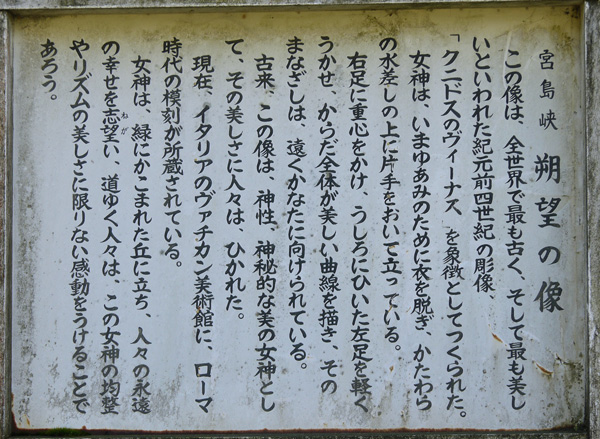 宮島峡 朔望の像
この像は、全世界で最も古く、そして最も美し
いといわれた紀元前四世紀の彫像、
「クニドスのヴィーナス」を象徴としてつくられた。
女神は、いまゆあみのために衣を脱ぎ、かたわら
の水差しの上に片手をおいて立っている。
右足に重心をかけ、うしろにひいた左足を軽く
うかせ、からだ全体が美しい曲線を描き、その
まなざしは、遠くかなたに向けられている。
古来、この像は、神性、神秘的な美の女神とし
て、その美しさに人々は、ひかれた。
現在、イタリアのヴァチカン美術館に、ローマ
時代の模刻が所蔵されている。
女神は、緑にかこまれた丘に立ち、人々の永遠
の幸せを志望い、道ゆく人々は、この女神の均整
やリズムの美しさに限りない感動をうけることで
あろう。
ねが